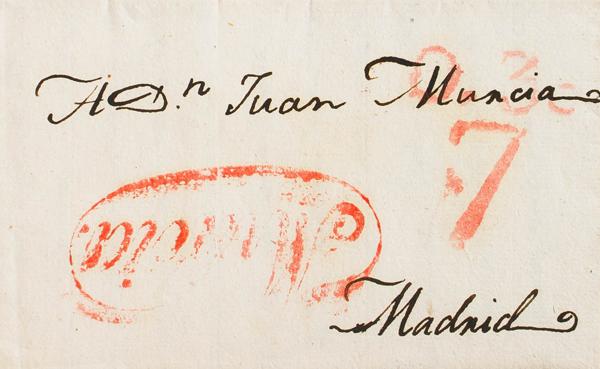 A D.n Juan Murcia
7
Murcia
Madrid